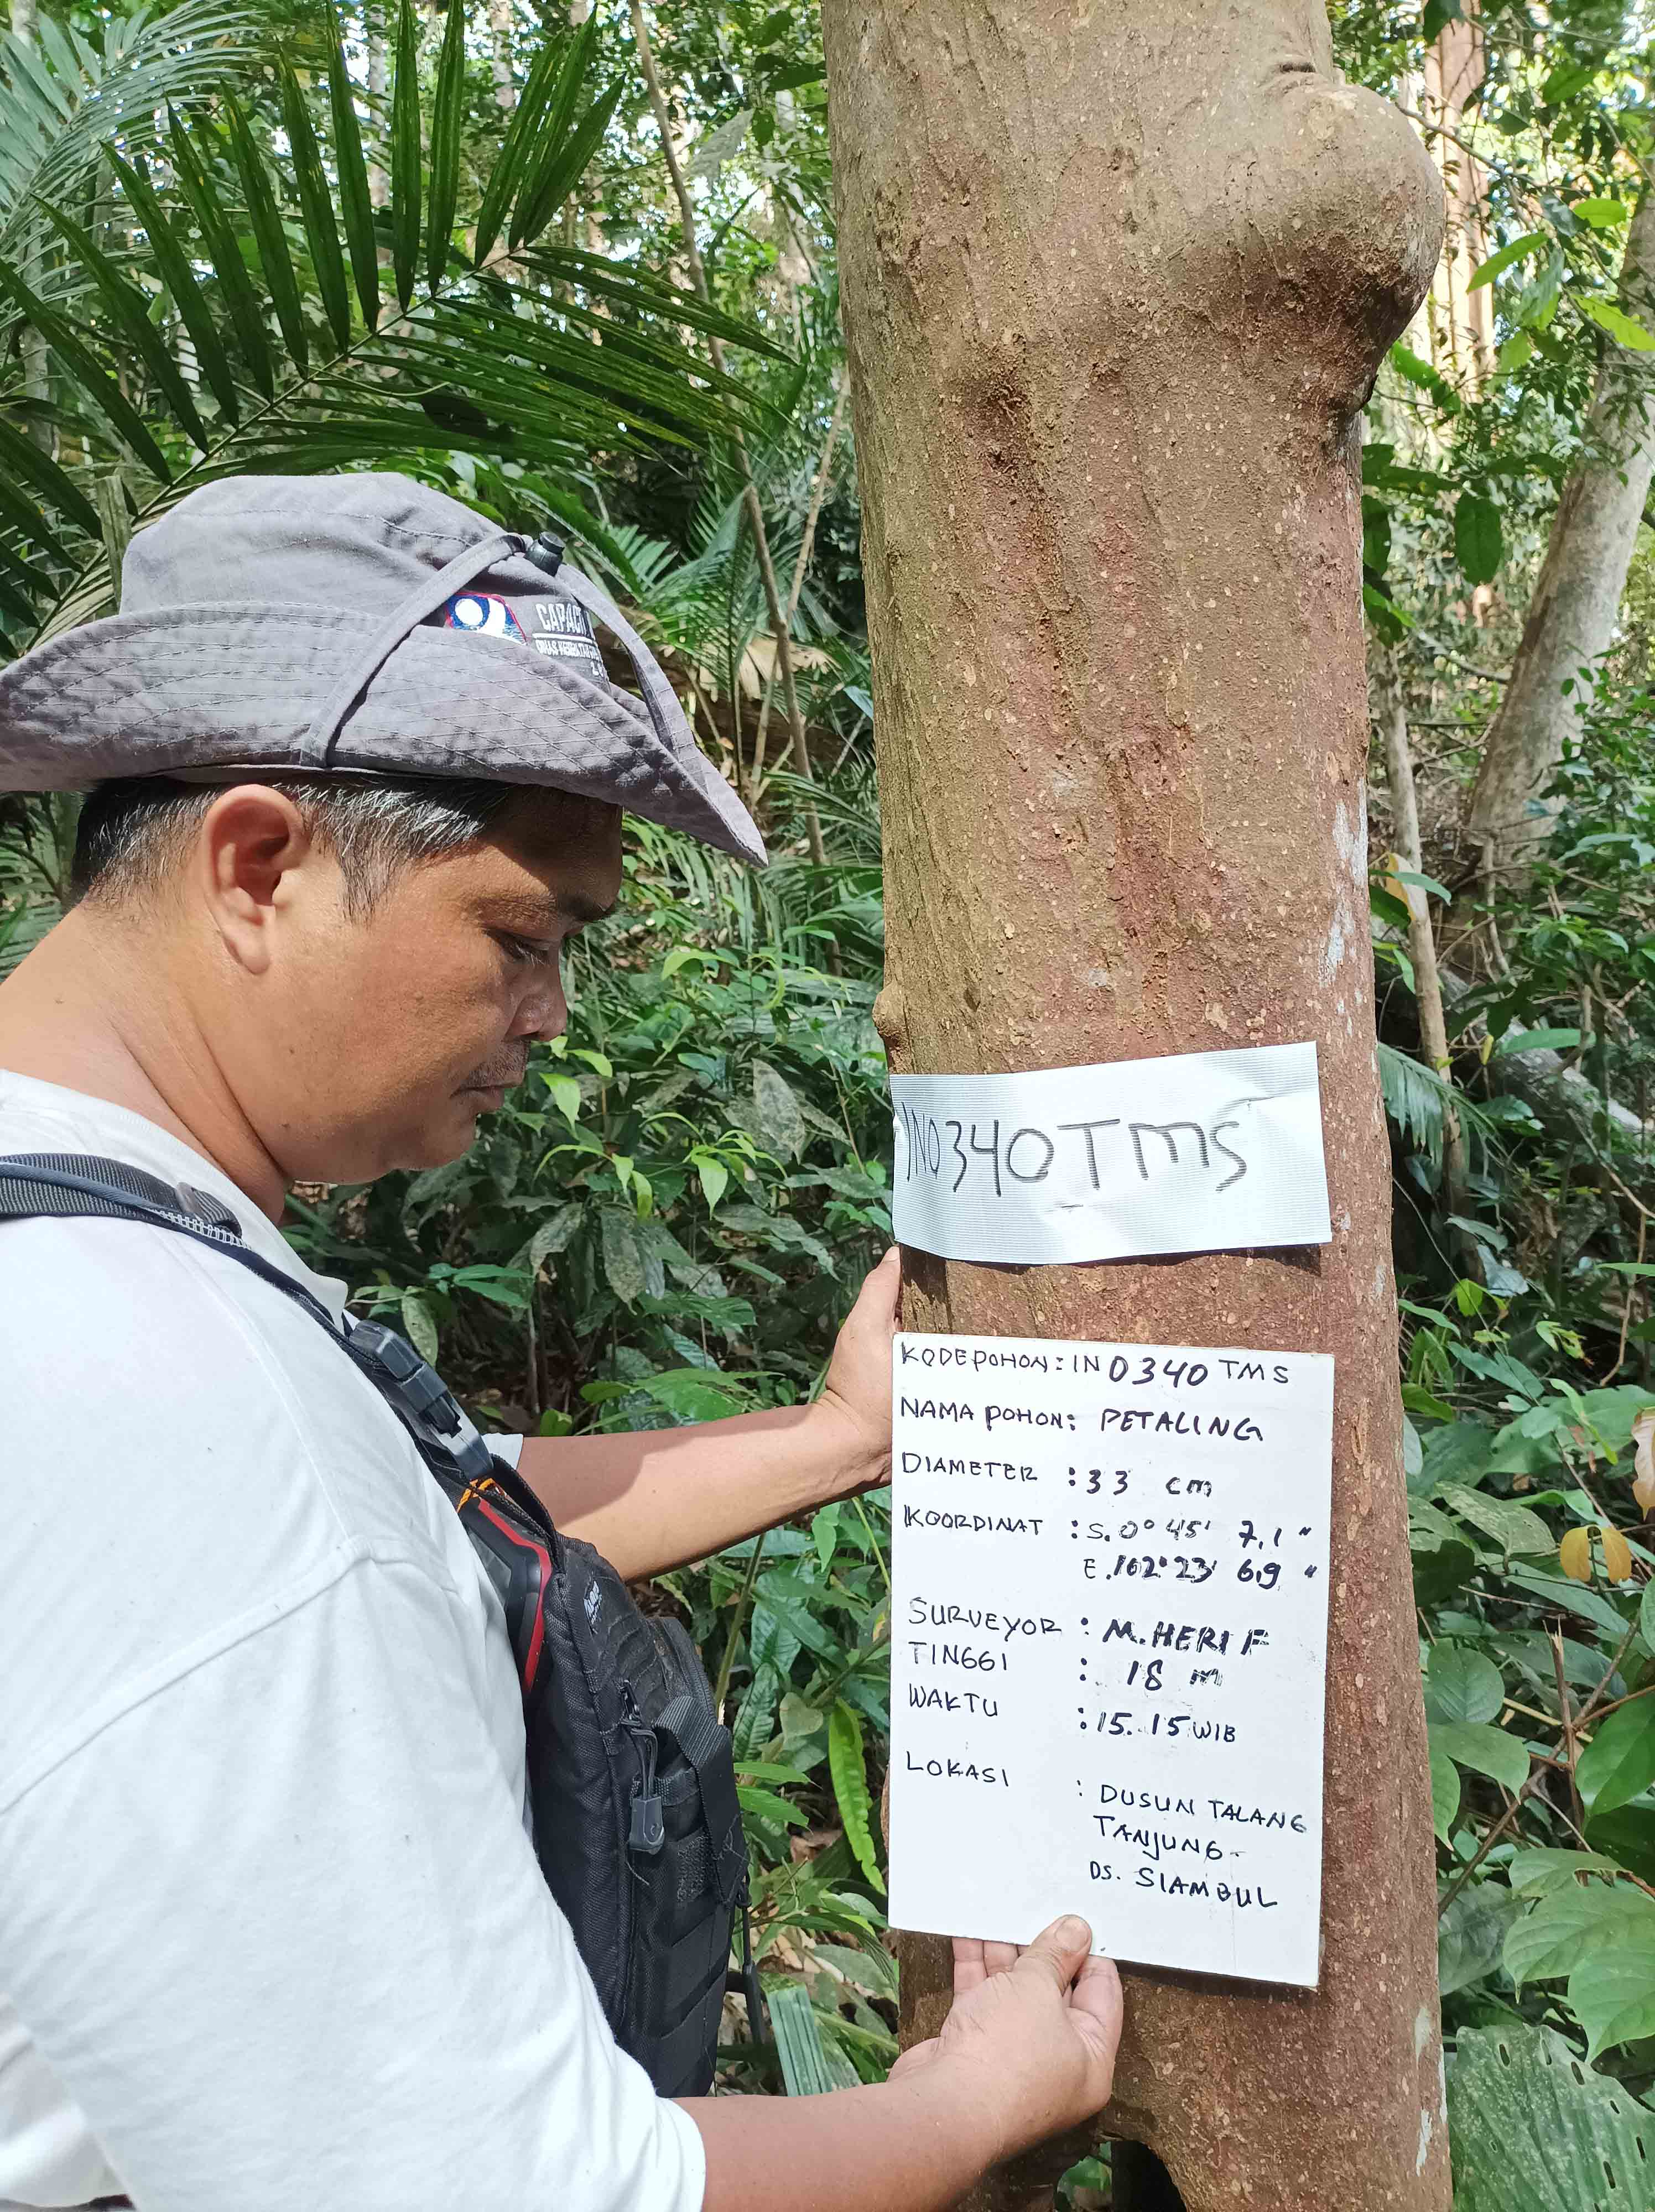 CAPACIT
IN0340TMS
KODE POHON: IN 0340 TMS
NAMA POHON: PETALING
DIAMETER : 33 cm
KOORDINAT : S. 0° 45' 7,1 "
E. 102° 23' 6,9 "
SURVEYOR : M. HERI F
TINGGI : 18 m
WAKTU : 15.15 WIB
LOKASI : DUSUN TALANG
TANJUNG-
DS. SIAMBUL